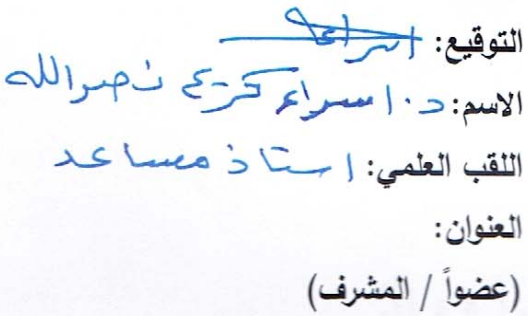 التوقيع: اسراء
الاسم: د. اسراء كريم نصرالله
اللقب العلمي: استاذ مساعد
العنوان:
(عضواً / المشرف)